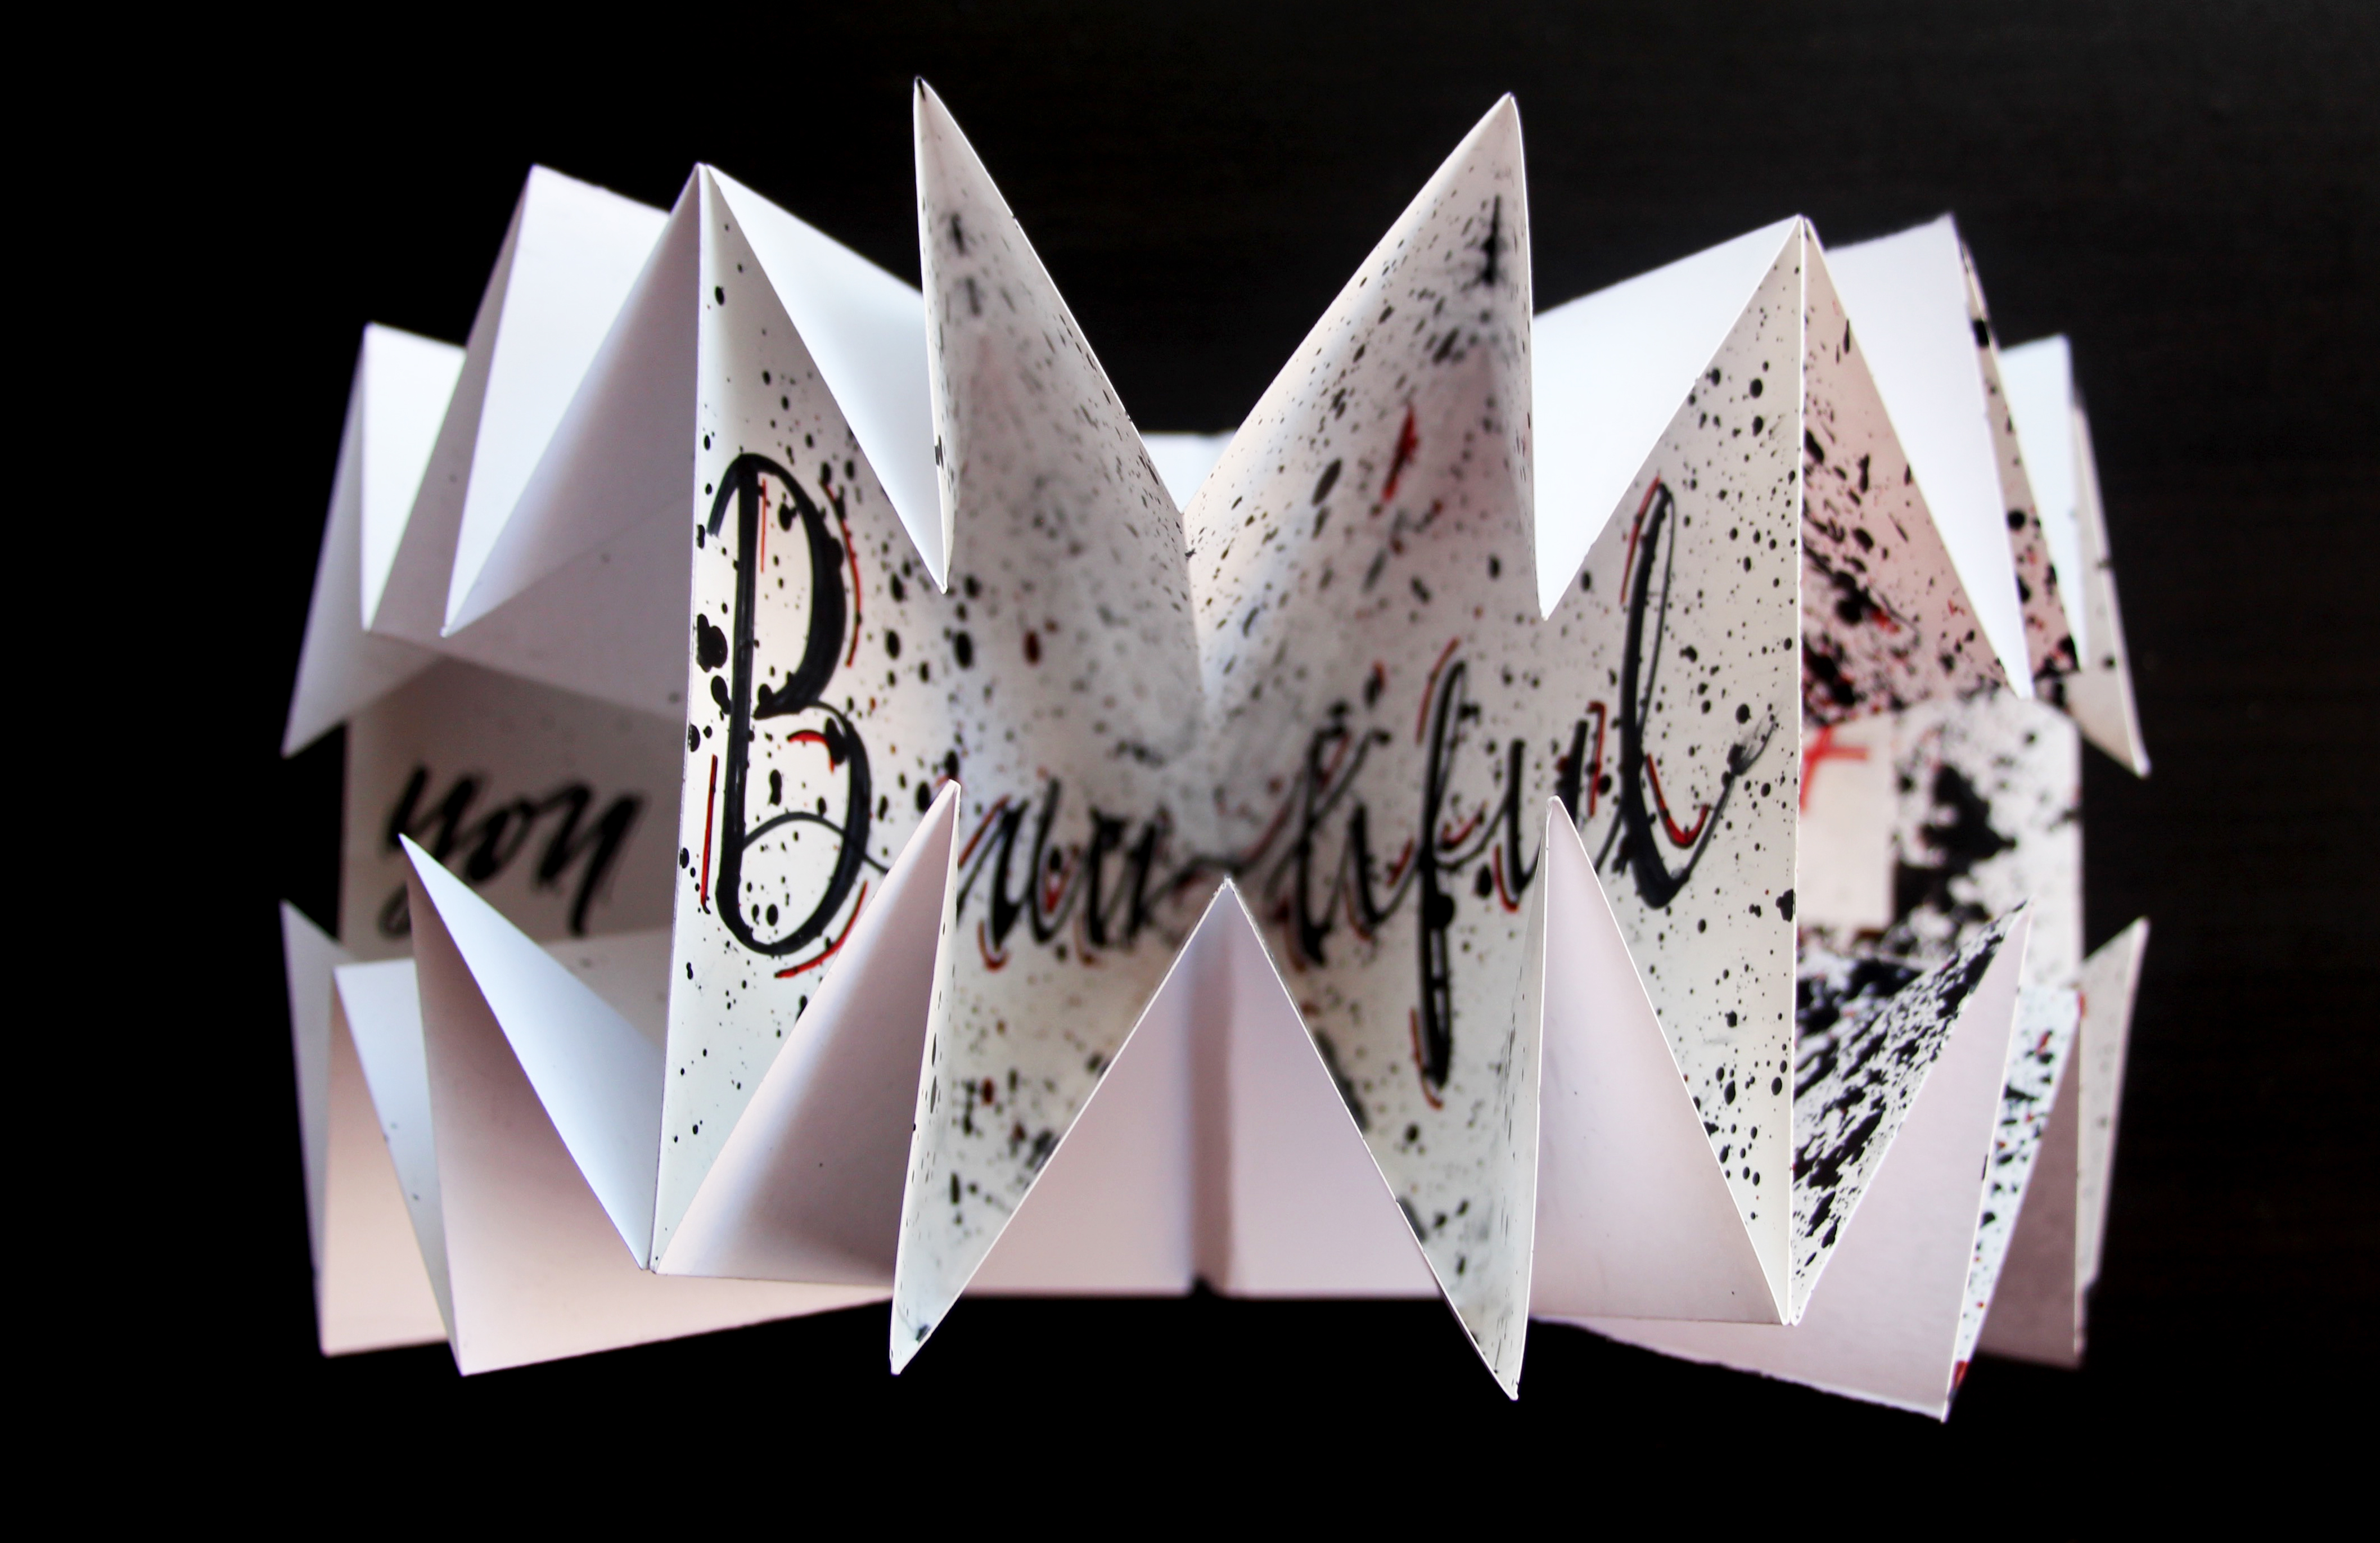 you
Beautiful